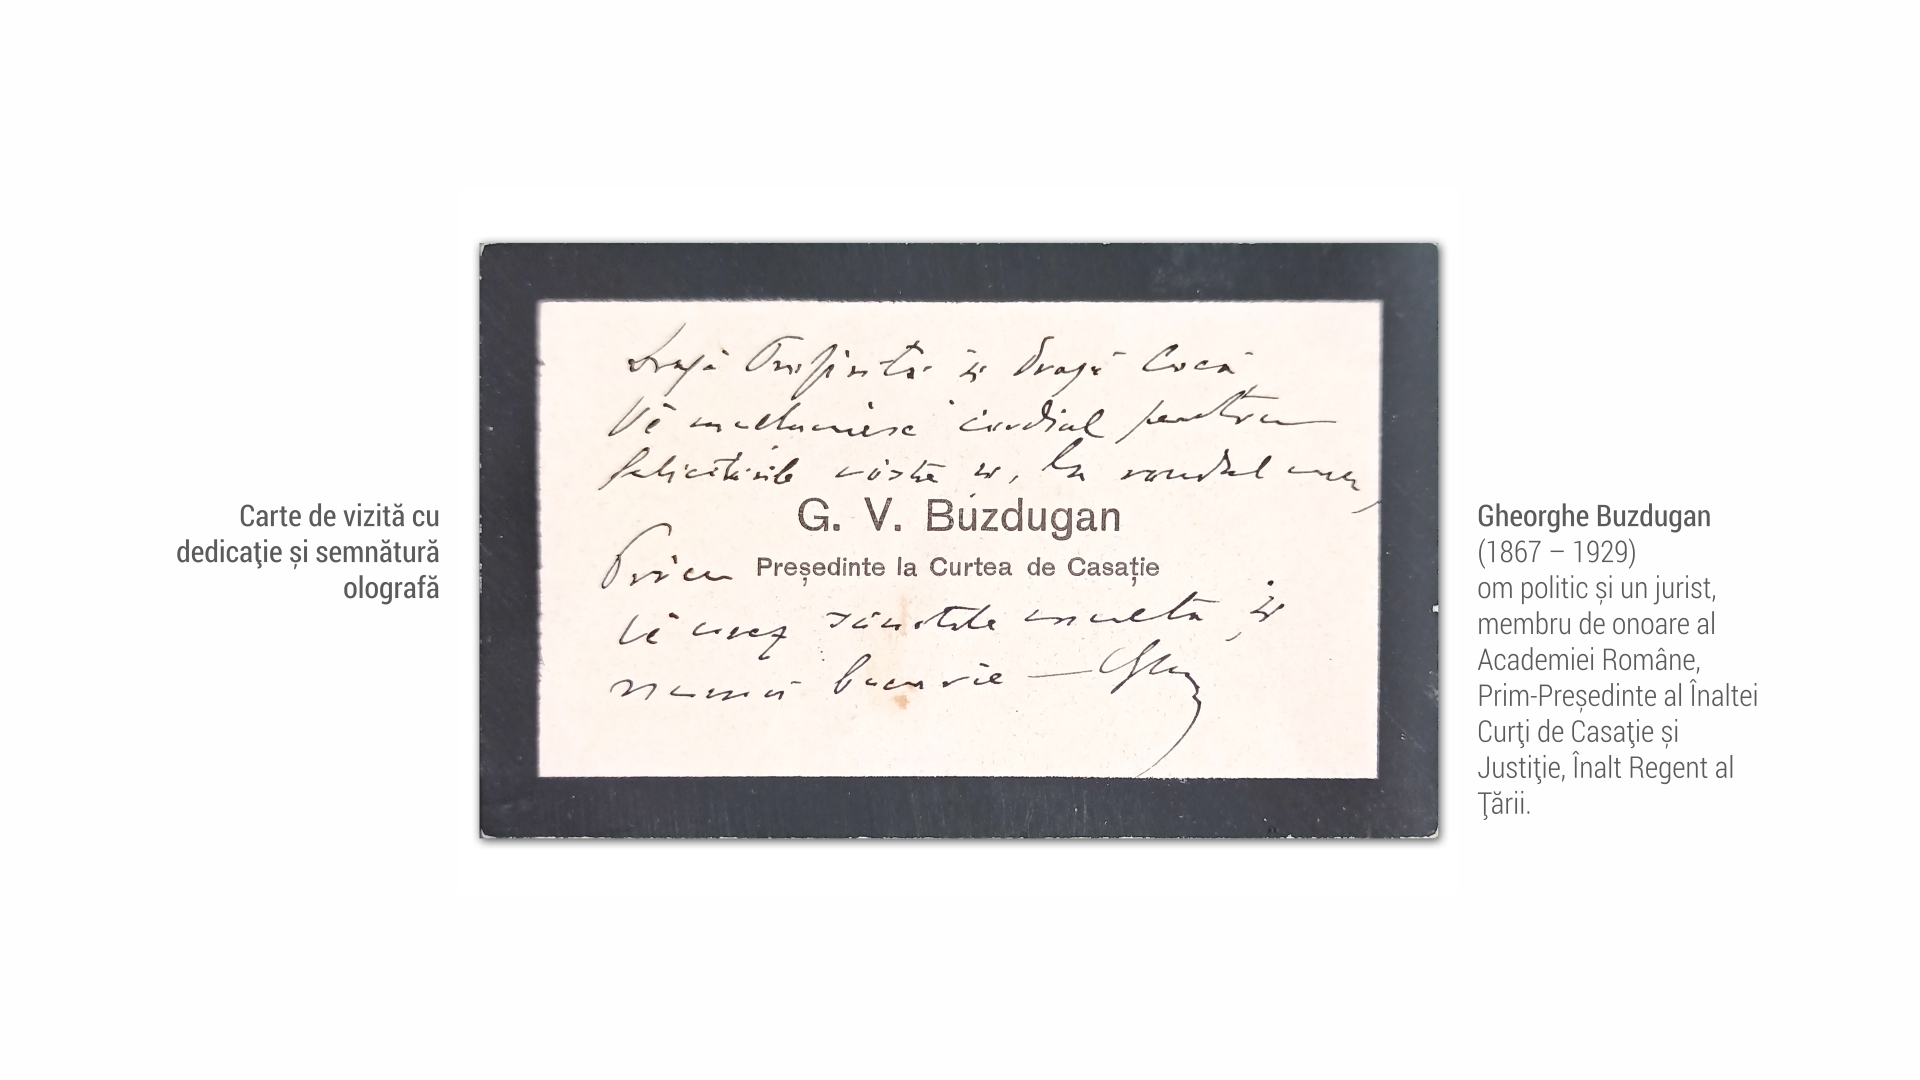 Carte de vizită cu
dedicaţie și semnătură
olografă
Dragă și Dragă Cocă
Vă mulțumesc cordial pentru
felicitările voastre și, la rândul meu,
G. V. Buzdugan
Președinte la Curtea de Casație
Vă urez sănătate multă și
numai bucurie —
Gheorghe Buzdugan
(1867 – 1929)
om politic și un jurist,
membru de onoare al
Academiei Române,
Prim-Președinte al Înaltei
Curţi de Casaţie și
Justiţie, Înalt Regent al
Ţării.